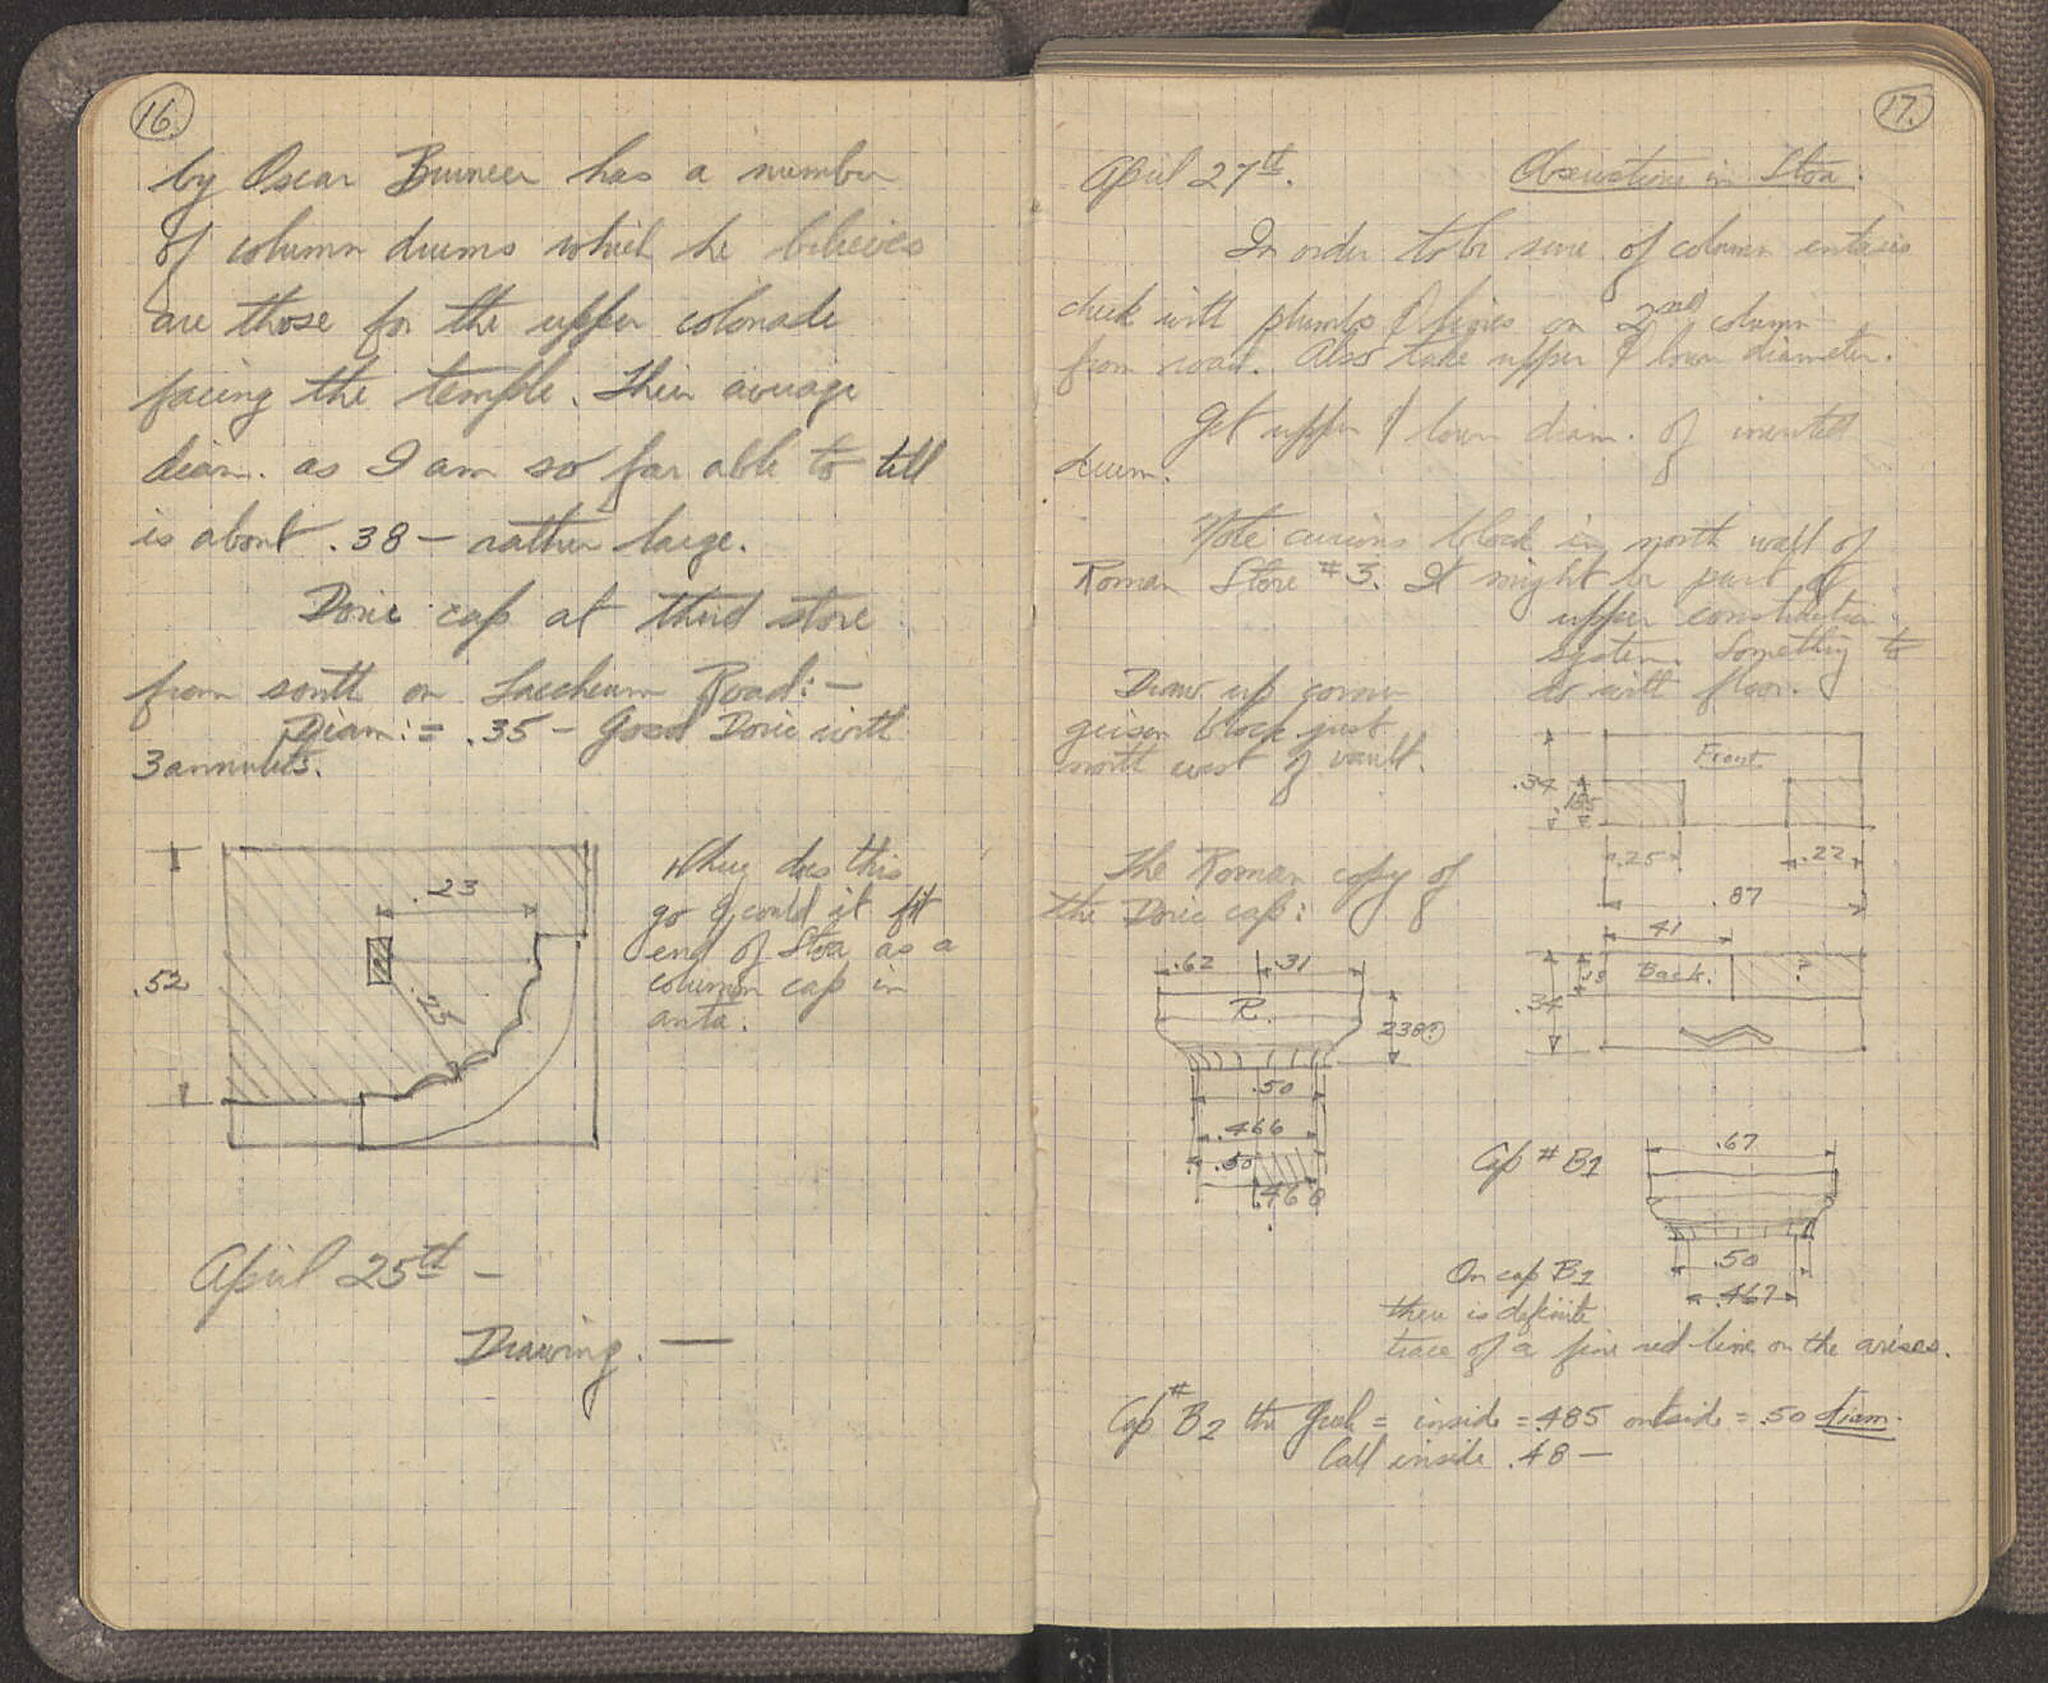 16.
by Oscar Bruneer has a number
of column drums which he believes
are those for the upper colonade
facing the temple. Their average
diam. as I am so far able to tell
is about .38 — rather large.
Doric cap at third store
from south on Leccheum Road: —
Diam: = .35 — Good Doric with
3 annulets.
.23
.52
.25
Where does this
go & could it fit
end of Stoa as a
column cap in
anta.
April 25th —
Drawing. —
17.
April 27th. Observations in Stoa.
In order to be sure of column entasis
check with plumbs & lines on 2nd column
from road. Also take upper & lower diameter.
Get upper & lower diam. of inverted
drum.
Note curious block in north wall of
Roman Store #3. It might be part of
upper construction
system. Something to
do with floor.
Draw up corner
geison block just
north west of vault.
Front.
.34 .185
.25 .22
.87
41
Back. ?
.18
.34
The Roman copy of
the Doric cap:
.62 .31
R.
238?
.50
.466
.50
.466
Cap # B1
.67
.50
.467
On cap B1
there is definite
trace of a fine red line on the arises.
Cap # B2 the Greek = inside = .485 outside = .50 diam.
Call inside .48 —